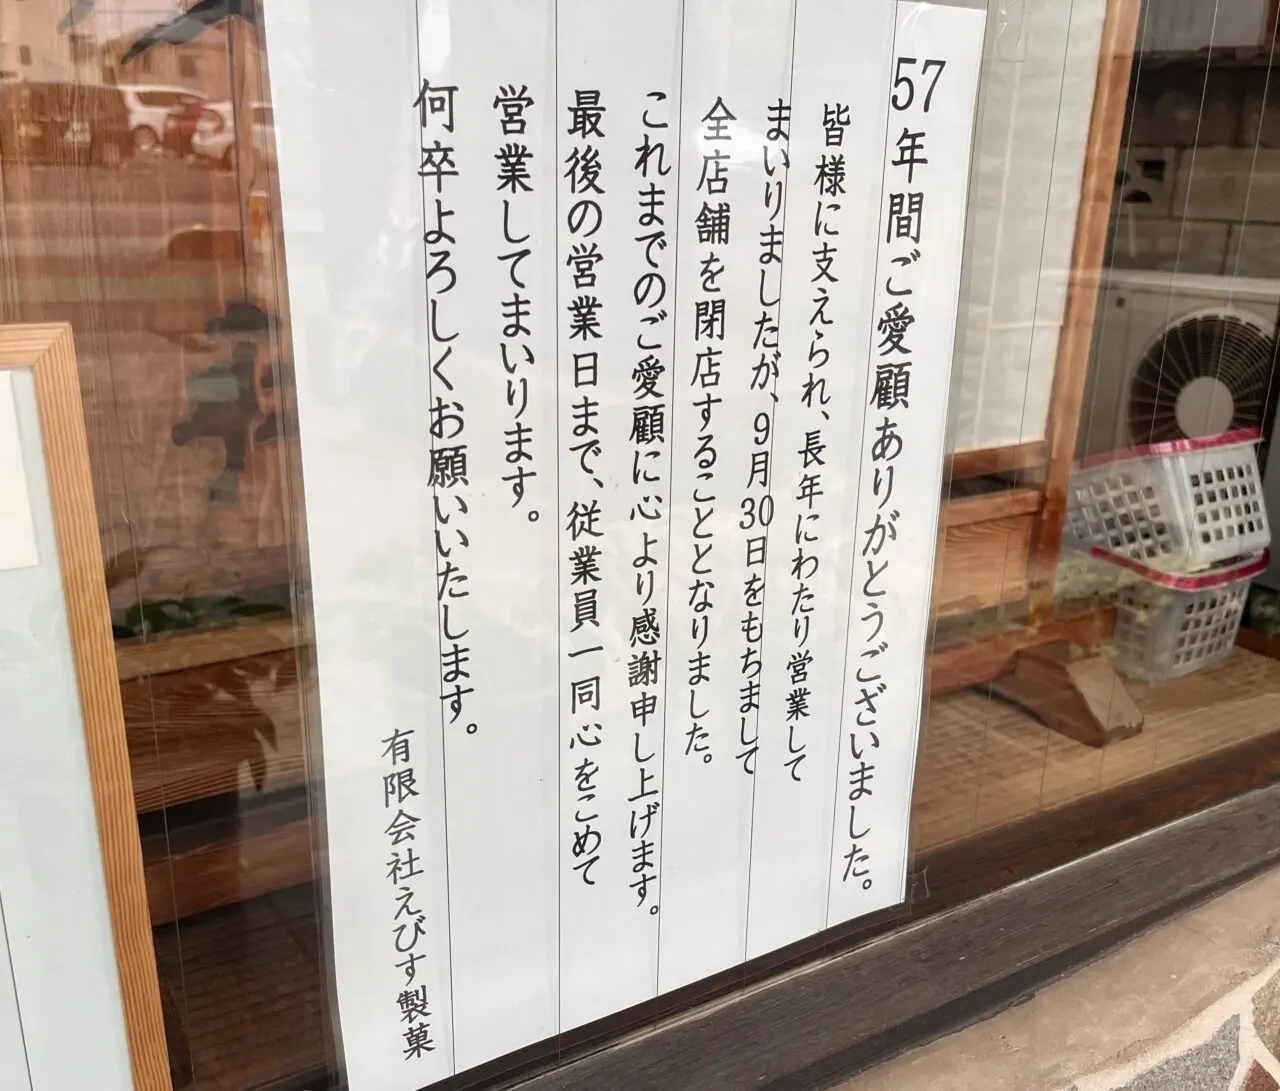 57年間ご愛顧ありがとうございました。
皆様に支えられ、長年にわたり営業して
まいりましたが、9月30日をもちまして
全店舗を閉店することとなりました。
これまでのご愛顧に心より感謝申し上げます。
最後の営業日まで、従業員一同心をこめて
営業してまいります。
何卒よろしくお願いいたします。
有限会社えびす製菓